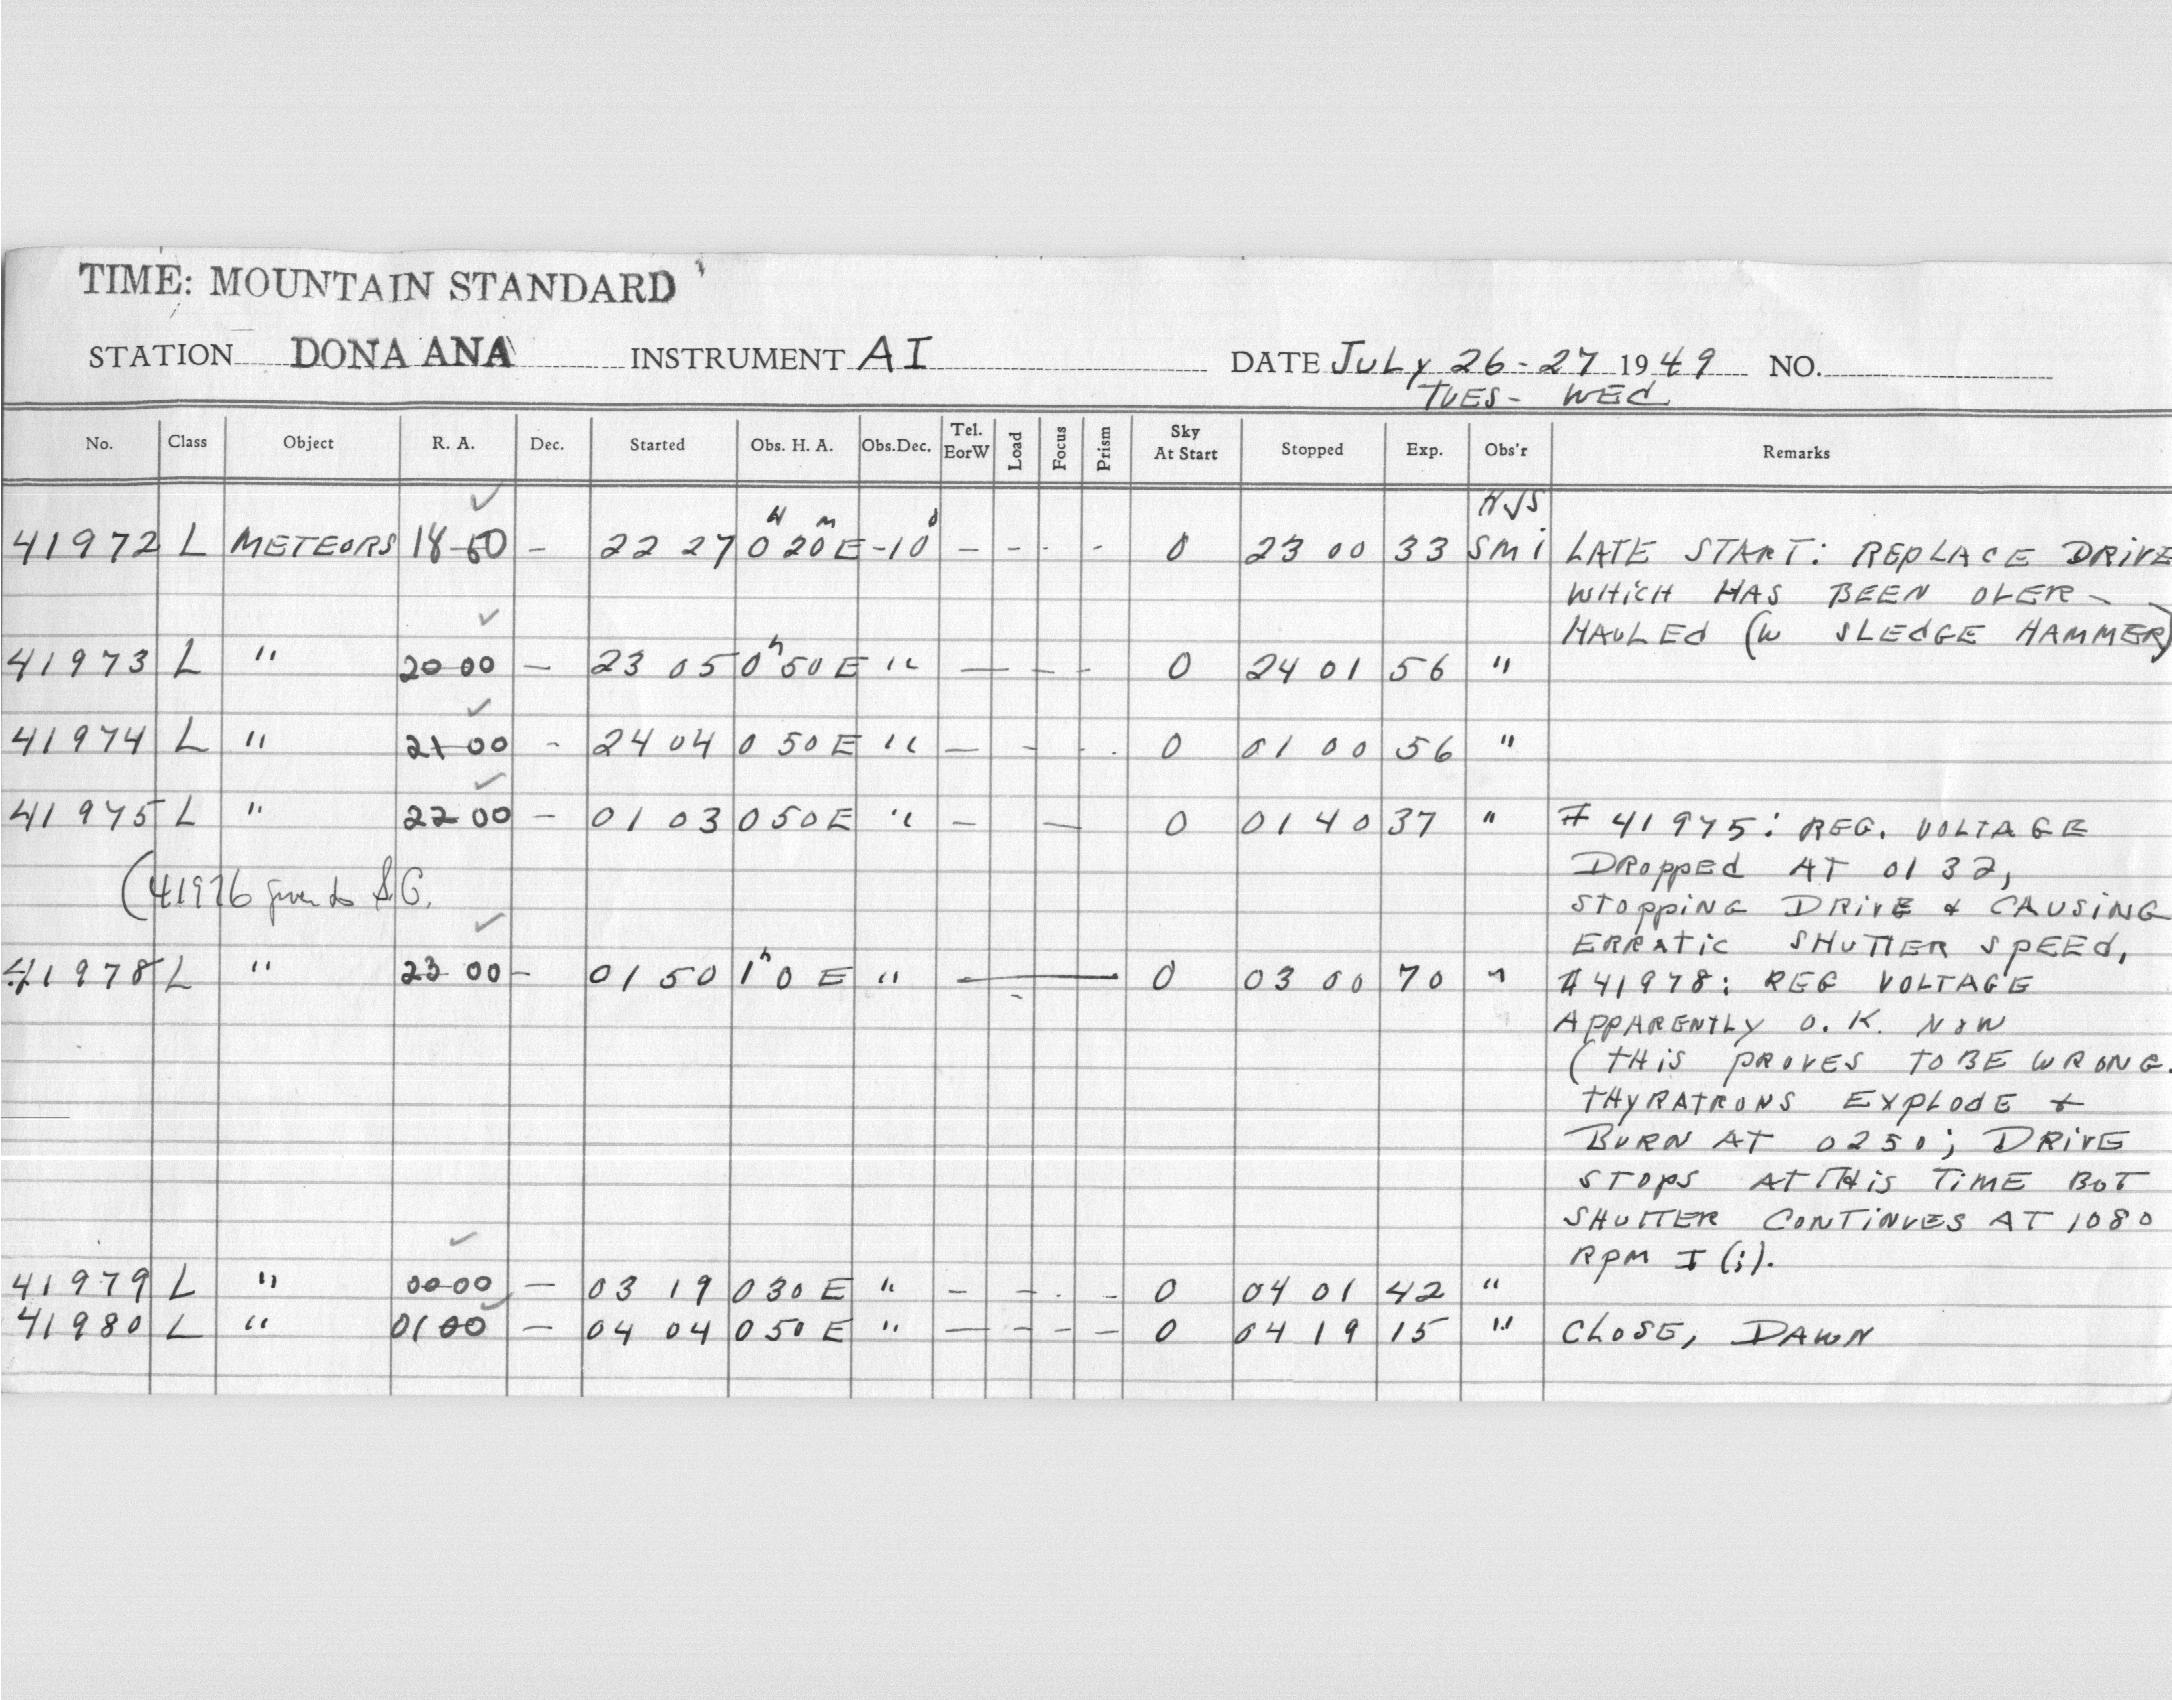 TIME: MOUNTAIN STANDARD
STATION DONA ANA INSTRUMENT AI DATE JULY 26-27 1949 NO.
TUES - WED
No. Class Object R. A. Dec. Started Obs. H. A. Obs.Dec. Tel. EorW Load Focus Prism Sky At Start Stopped Exp. Obs'r Remarks
HJS
41972 L METEORS 18 50 - 22 27 0 H 20 M E -10 - - - - 0 23 00 33 SMI LATE START: REPLACE DRIVE
WHICH HAS BEEN OVER-
HAULED (W SLEDGE HAMMER)
41973 L " 20 00 - 23 05 0 h 50 E " - - - - 0 24 01 56 "
41974 L " 21 00 - 24 04 0 50 E " - - - - 0 01 00 56 "
41975 L " 22 00 - 01 03 0 50 E " - - 0 01 40 37 " # 41975: REG. VOLTAGE
DROPPED AT 0132,
(41976 given to SG. STOPPING DRIVE & CAUSING
ERRATIC SHUTTER SPEED.
41978 L " 23 00 - 01 50 1 h 0 E " - 0 03 00 70 " # 41978: REG VOLTAGE
APPARENTLY O.K. NOW
(THIS PROVES TO BE WRONG.
THYRATRONS EXPLODE &
BURN AT 0250; DRIVE
STOPS AT THIS TIME BUT
SHUTTER CONTINUES AT 1080
RPM I (;).
41979 L " 00 00 - 03 19 0 30 E " - - - - 0 04 01 42 "
41980 L " 01 00 - 04 04 0 50 E " - - - - 0 04 19 15 " CLOSE, DAWN